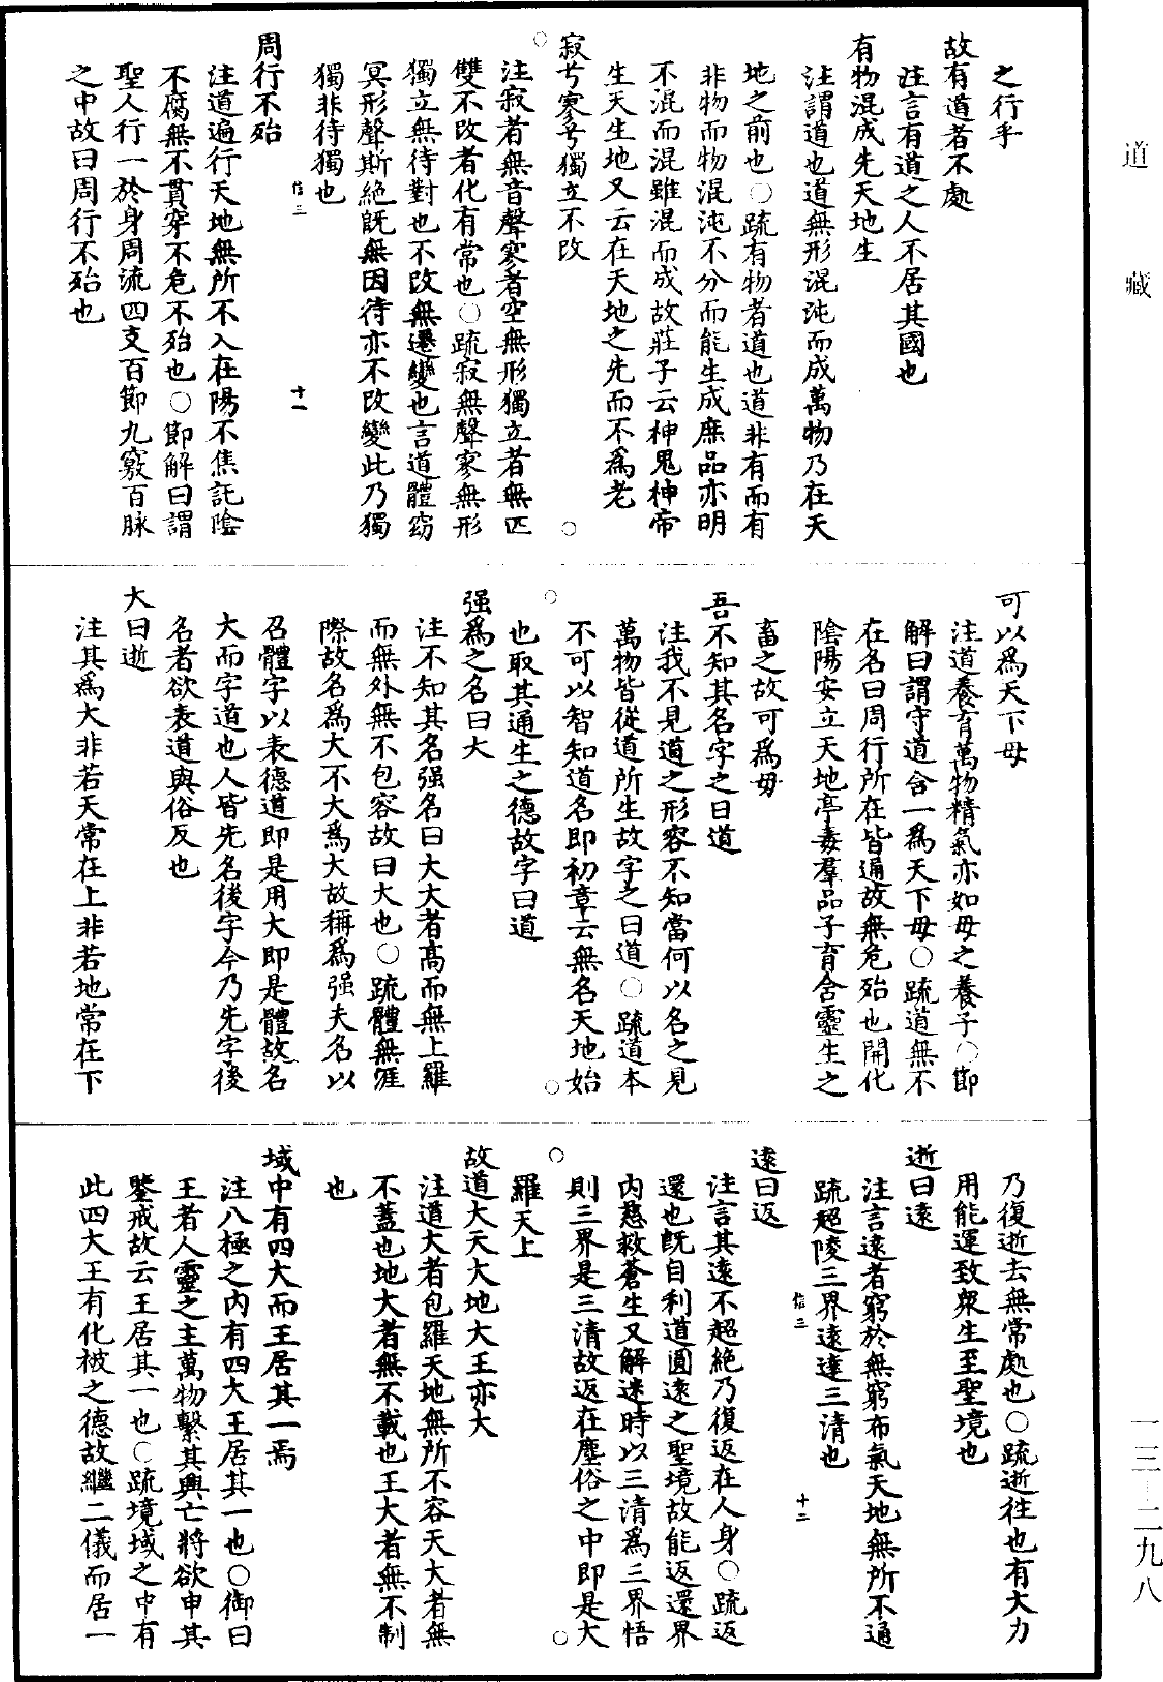 道藏
一三—二九八
之行乎
故有道者不處
注言有道之人不居其國也
有物混成先天地生
注謂道也道無形混沌而成萬物乃在天
地之前也○疏有物者道也道非有而有
非物而物混沌不分而能生成庶品亦明
不混而混雖混而成故莊子云神鬼神帝
生天生地又云在天地之先而不為老
寂兮寥兮獨立不改
注寂者無音聲寥者空無形獨立者無匹
雙不改者化有常也○疏寂無聲寥無形
獨立無待對也不改無遷變也言道體窈
冥形聲斯絕既無因待亦不改變此乃獨
獨非待獨也
信三 十一
周行不殆
注道遍行天地無所不入在陽不焦託陰
不腐無不貫穿不危不殆也○節解曰謂
聖人行一於身周流四支百節九竅百脉
之中故曰周行不殆也
可以為天下母
注道養育萬物精氣亦如母之養子○節
解曰謂守道含一為天下母○疏道無不
在名曰周行所在皆通故無危殆也開化
陰陽安立天地亭毒羣品子育含靈生之
畜之故可為母
吾不知其名字之曰道
注我不見道之形容不知當何以名之見
萬物皆從道所生故字之曰道○疏道本
不可以智知道名即初章云無名天地始
也取其通生之德故字曰道
强為之名曰大
注不知其名强名曰大大者高而無上羅
而無外無不包容故曰大也○疏體無涯
際故名為大不大為大故稱為强夫名以
召體字以表德道即是用大即是體故名
大而字道也人皆先名後字今乃先字後
名者欲表道與俗反也
大曰逝
注其為大非若天常在上非若地常在下
乃復逝去無常處也○疏逝往也有大力
用能運致衆生至聖境也
逝曰遠
注言遠者窮於無窮布氣天地無所不通
疏超陵三界遠達三清也
信三 十二
遠曰返
注言其遠不超絕乃復返在人身○疏返
還也既自利道圓遠之聖境故能返還界
内慈救蒼生又解迷時以三清為三界悟
則三界是三清故返在塵俗之中即是大
羅天上
故道大天大地大王亦大
注道大者包羅天地無所不容天大者無
不蓋也地大者無不載也王大者無不制
也
域中有四大而王居其一焉
注八極之内有四大王居其一也○御曰
王者人靈之主萬物繫其興亡將欲申其
鑒戒故云王居其一也○疏境域之中有
此四大王有化被之德故繼二儀而居一